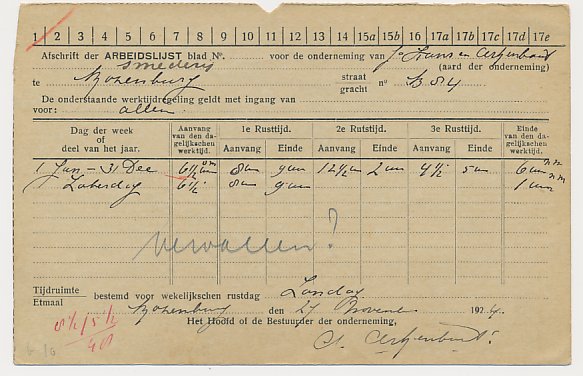 1 2 3 4 5 6 7 8 9 10 11 12 13 14 15 15a 15b 16 16a 17 17a 17b 17c 17d 17e
Afschrift der ARBEIDSLIJST blad No. voor de onderneming van
smederij (aard der onderneming)
te Rozenburg straat gracht no B 84
De onderstaande werktijdregeling geldt met ingang van
voor: allen
Dag der week of deel van het jaar. Aanvang van den dagelijkschen werktijd. 1e Rusttijd. 2e Rusttijd. 3e Rusttijd. Einde van den dagelijkschen werktijd.
Aanvang Einde Aanvang Einde Aanvang Einde
1 Jan – 31 Dec 6½ 8 um 9 um 12½ um 2 um 4½ 5 um 6 um
Zaterdag 6½ 8 um 9 um 1 um
vervallen?
Tijdruimte
Etmaal bestemd voor wekelijkschen rustdag Zondag
Rozenburg den 27 Novem 192
Het Hoofd of de Bestuurder der onderneming,